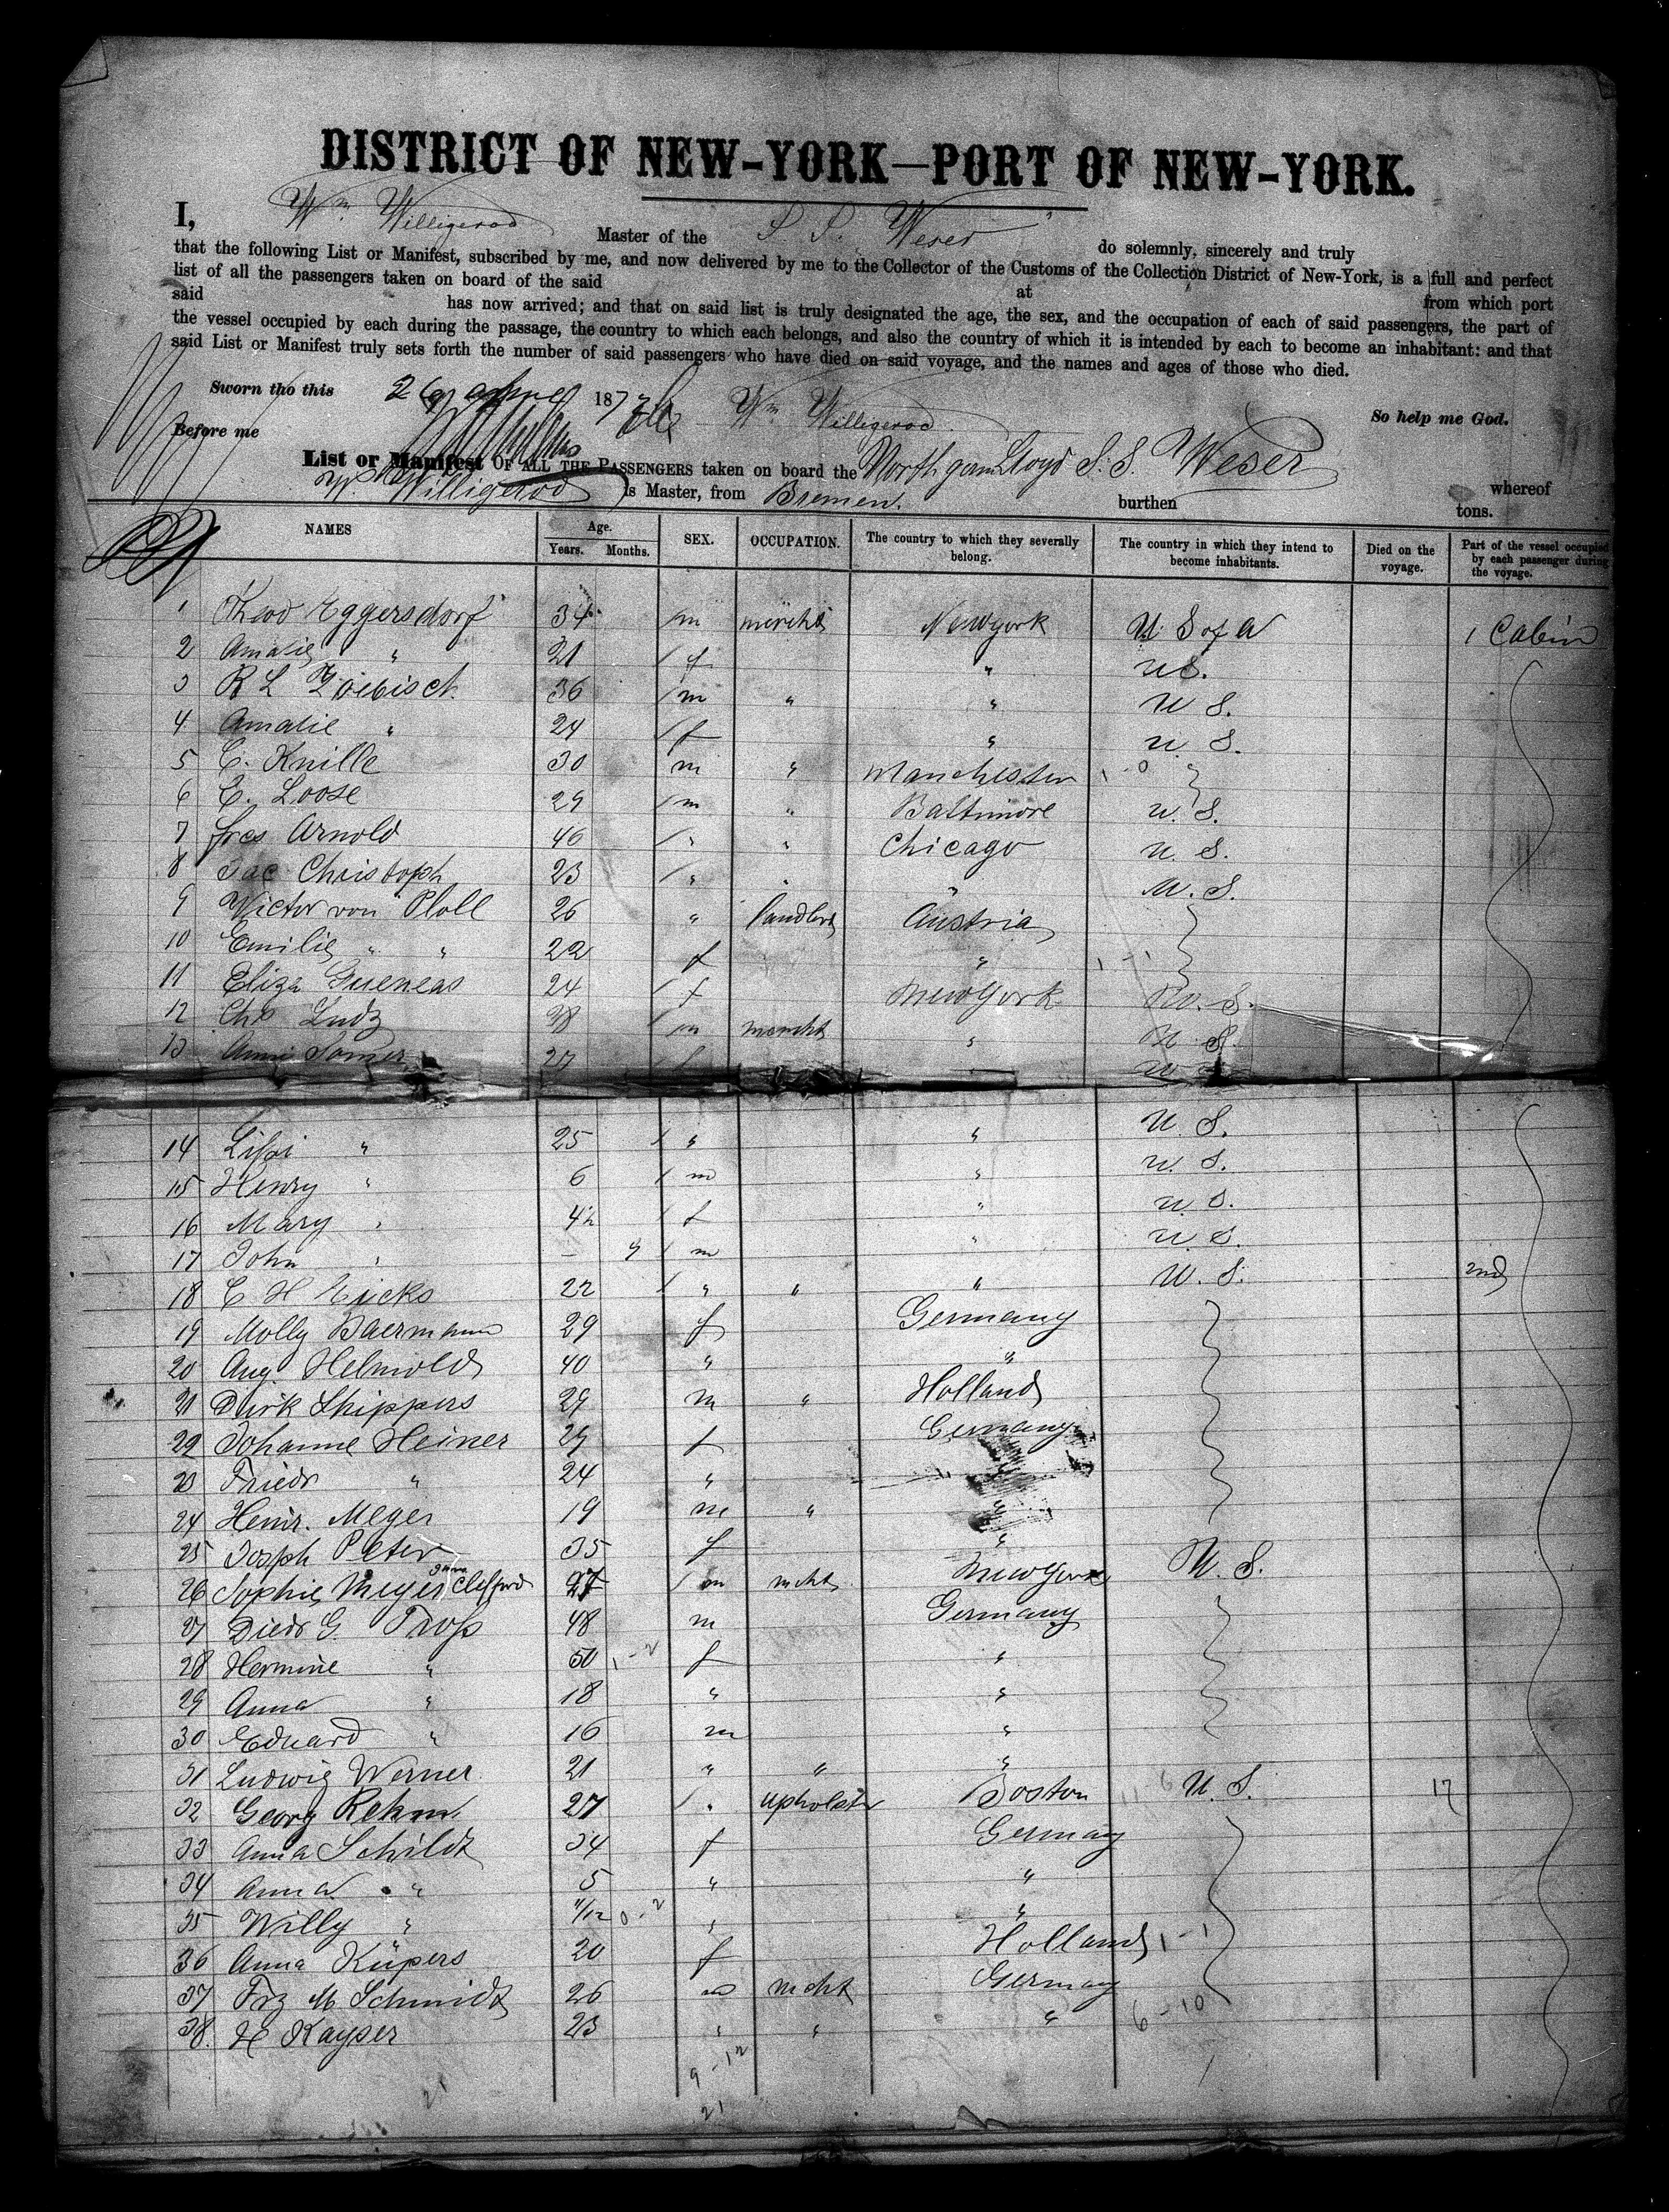 DISTRICT OF NEW-YORK—PORT OF NEW-YORK.
I, Wm Willigerod Master of the S. S. Weser do solemnly, sincerely and truly
that the following List or Manifest, subscribed by me, and now delivered by me to the Collector of the Customs of the Collection District of New-York, is a full and perfect
list of all the passengers taken on board of the said at from which port
said has now arrived; and that on said list is truly designated the age, the sex, and the occupation of each of said passengers, the part of
the vessel occupied by each during the passage, the country to which each belongs, and also the country of which it is intended by each to become an inhabitant: and that
said List or Manifest truly sets forth the number of said passengers who have died on said voyage, and the names and ages of those who died.
Sworn tho this 26 187 Wm Willigerod So help me God.
Before me
List or Manifest OF ALL THE PASSENGERS taken on board the North germ Lloyd S. S. Weser whereof
W. Willigerod is Master, from Bremen. burthen tons.
NAMES Age. Years. Months. SEX. OCCUPATION. The country to which they severally belong. The country in which they intend to become inhabitants. Died on the voyage. Part of the vessel occupied by each passenger during the voyage.
1 Theod Eggersdorf 34 m mercht Newyork U S of A 1 Cabin
2 Amalie " 21 f " U S.
3 R L Zoebisch 36 m " " U S.
4 Amalie " 24 f " U S.
5 C. Knille 30 m " Manchester 1-0
6 E. Loose 29 m " Baltimore U. S.
7 Arnold 46 " " Chicago U. S.
8 Jac Christoph 23 " " " U. S.
9 Victor von Ploll 26 " landlord Austria
10 Emilie " " 22 f " 1-1
11 Eliza Gueneas 24 f Newyork U. S.
12 Chs Ludz 38 m mercht " U. S.
13 Anni 27 f U S
14 Lissi " 25 " " U. S.
15 Henry " 6 m " U. S.
16 Mary " 4 f " U. S.
17 John " — 9 m " U. S.
18 C H Eicks 22 " " " U. S. 2nd
19 Molly Baermann 29 f Germany
20 Aug. Helmold 40 " "
21 Dirk Shippers 29 m " Holland
22 Johanne Heiner 29 f Germany
23 Friedr " 24 " "
24 Heinr. Meyer 19 m " "
25 Joseph Peter 35 f "
26 Sophie Meyer 27 m mcht Newyork U. S.
27 Diedr G. Tross 48 m Germany
28 Hermine " 50 1-2 f "
29 Anna " 18 " "
30 Eduard " 16 m "
31 Ludwig Werner 21 " " "
32 Georg Rehm 27 " upholster Boston 11-6 U. S. 17
33 Anna Schildt 34 f Germany
34 Anna " 5 " "
35 Willy " 11/12 0-2 " "
36 Anna Küpers 20 f Holland 1-1
37 Frz M Schmidt 26 m mcht Germany
38. H Kayser 23 " " " 6-10
9-12
21 21